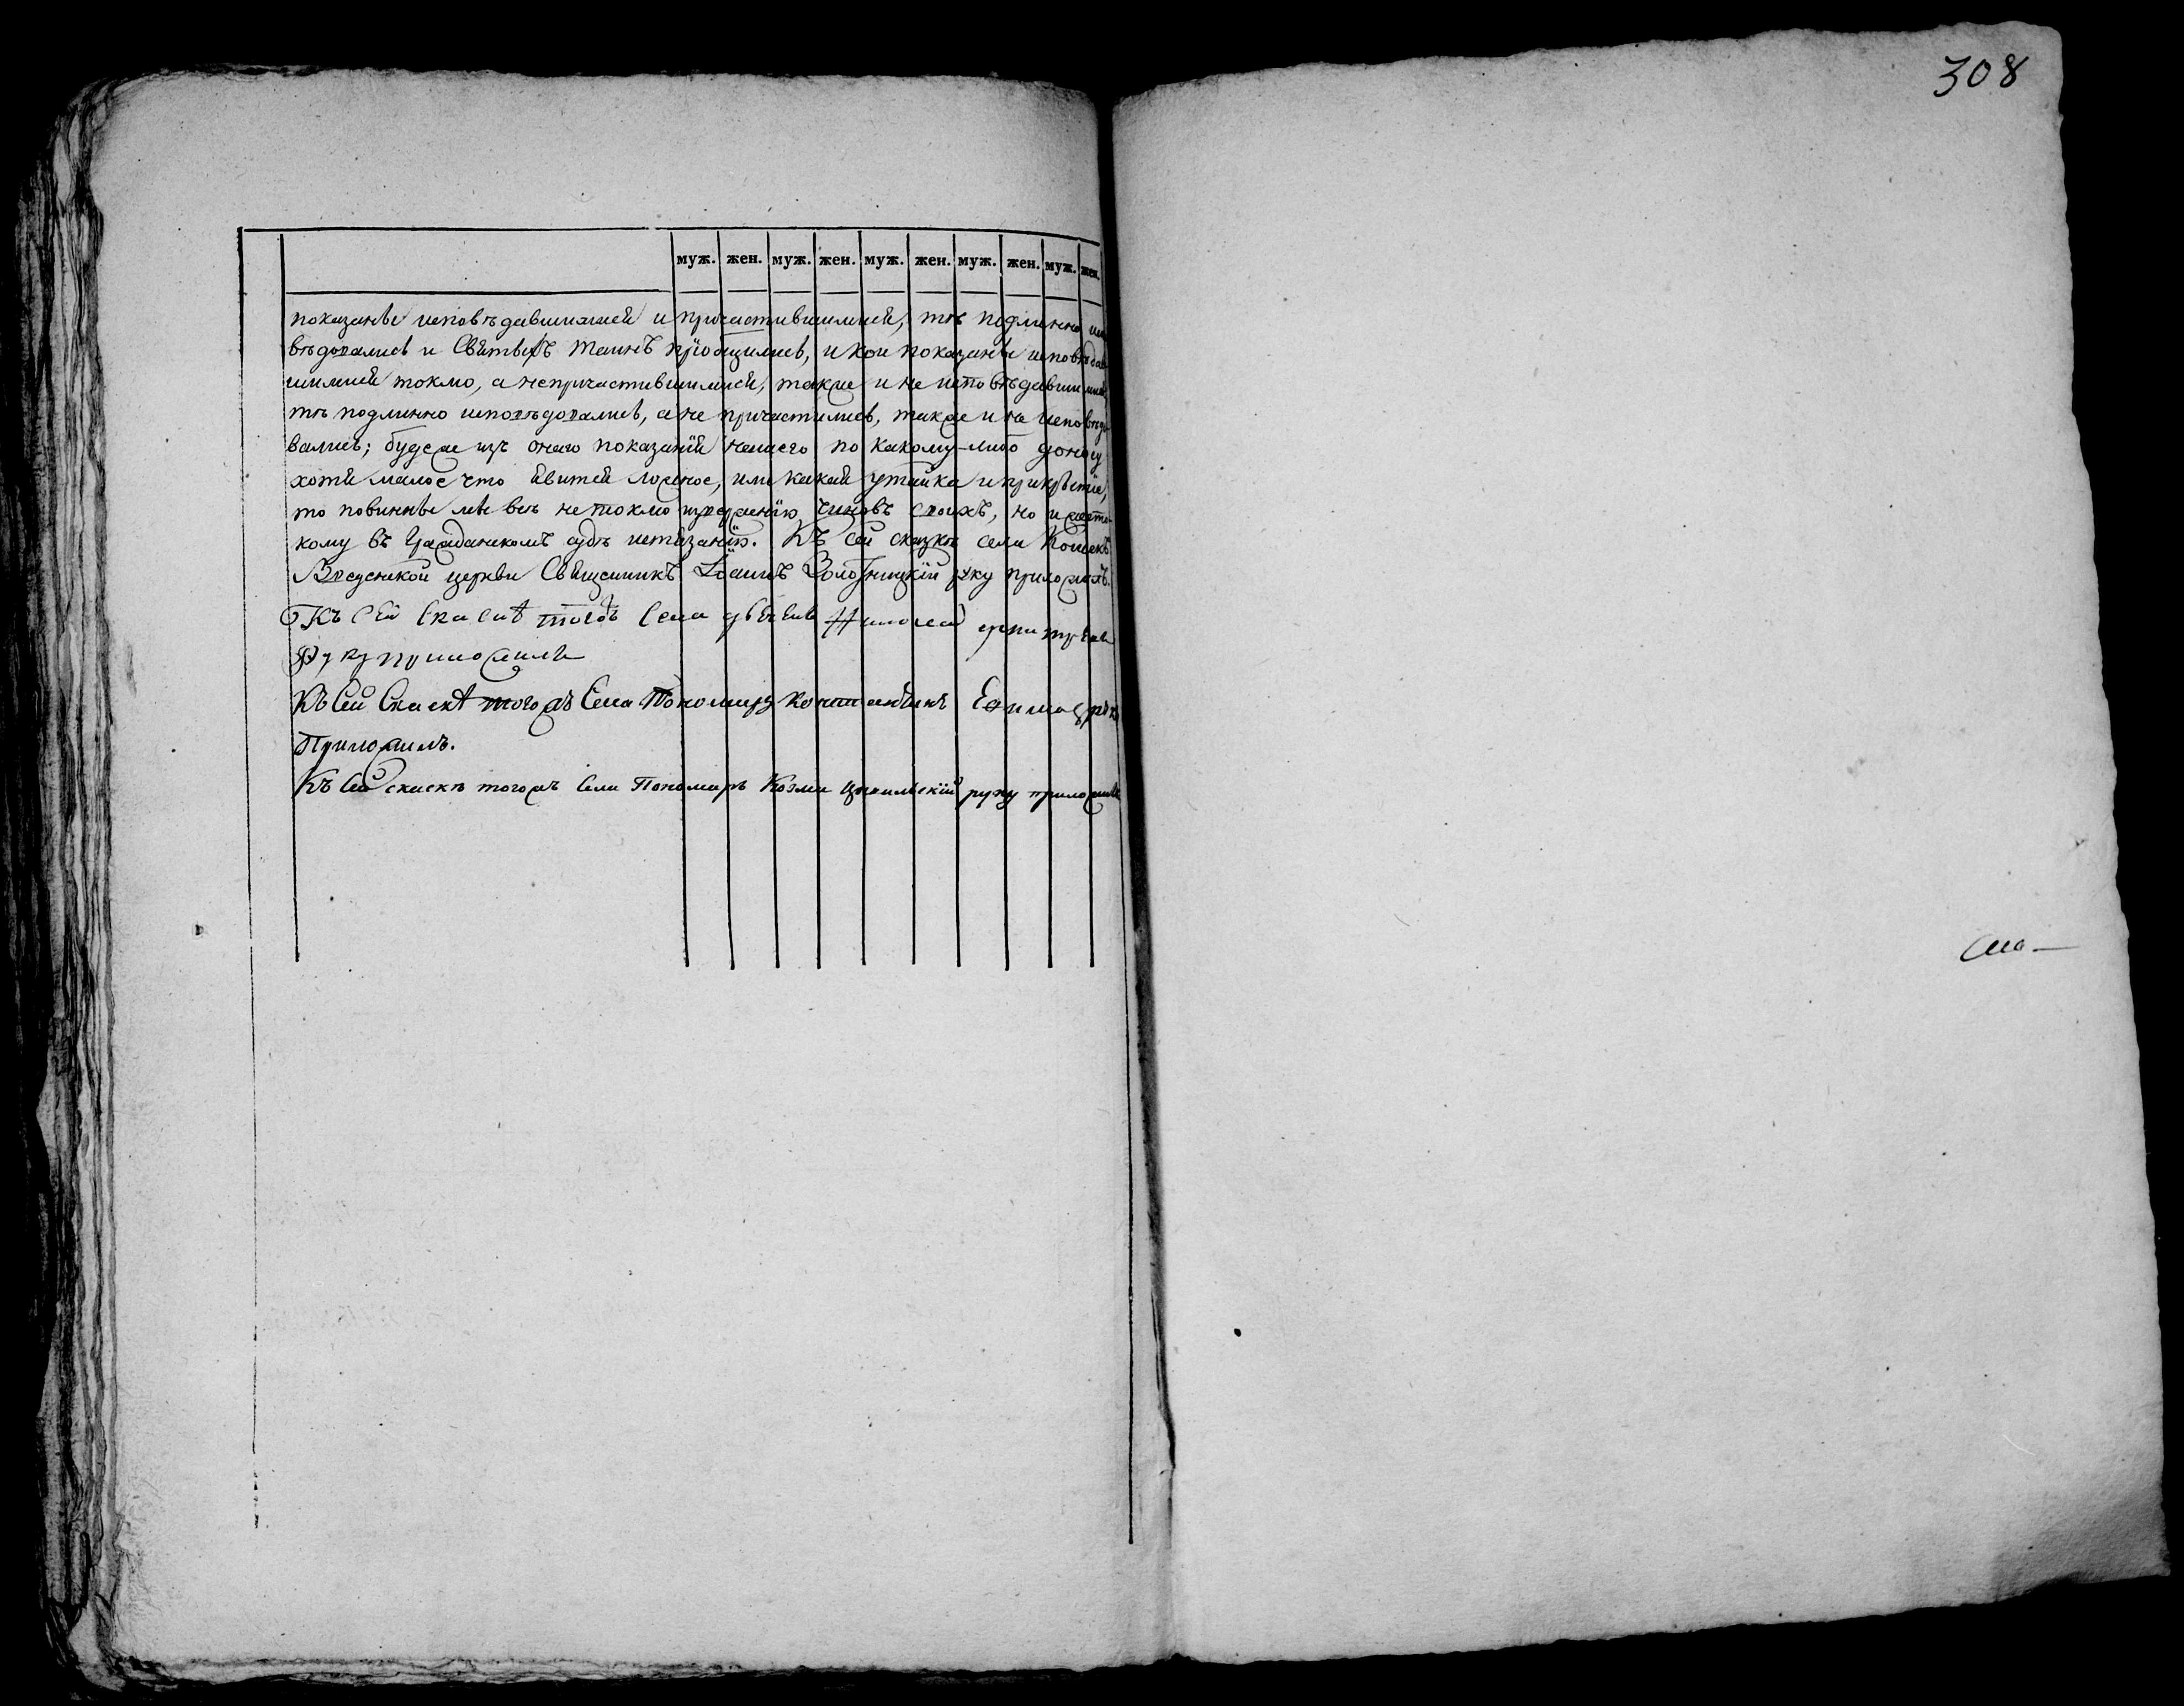 308
муж. жен. муж. жен. муж. жен. муж. жен. муж. жен.
показаны исповѣдавшимися и причастившимися, тѣ подлинно испо
вѣдовались и Святыхъ Таинъ прïобщились, и кои показаны исповѣдав
шимися токмо, а непричастившимися, также и не исповѣдавшимися
тѣ подлинно исповѣдовались, а не причастились, также и не исповѣдо
вались; будеже изъ онаго показанïя нашего по какому-либо доносу
хотя малое что явится ложное, или какая утайка и прикрытïе,
то повинны мы всѣ нетокмо изверженïю чиновъ своихъ, но и жесто-
кому въ Гражданскомъ судѣ истязанïю. Къ сей сказкѣ села
Введенской церкви Священникъ Iоаннъ Золотницкïй руку приложилъ.
Къ сей скаскѣ тогожъ села
руку приложилъ
Къ сей скаскѣ тогожъ села Пономарь
Приложилъ.
Къ сей скаскѣ тогожъ села Пономарь Козма руку приложилъ